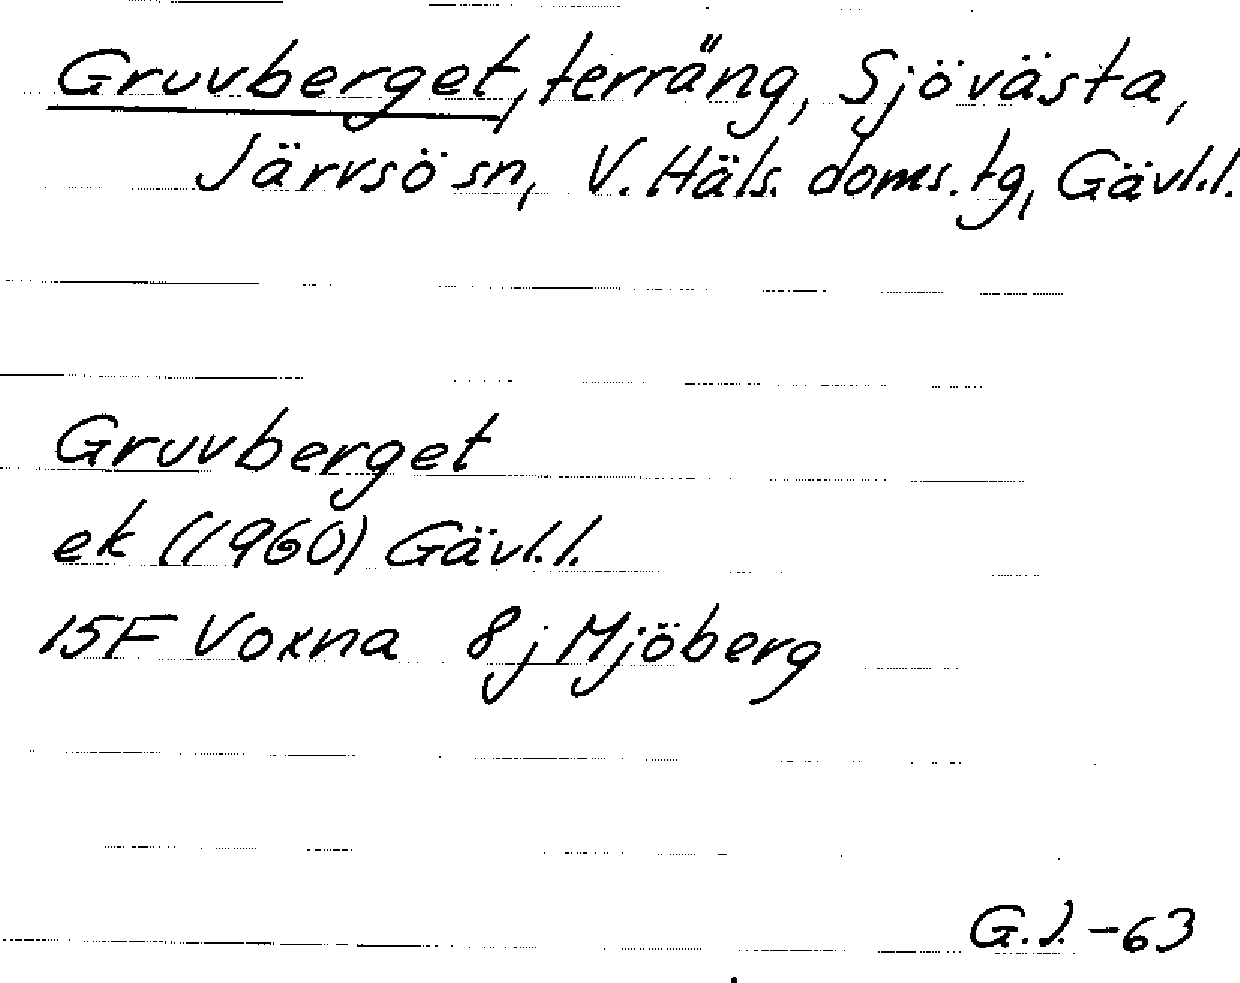 Gruvberget, terräng, Sjövästa,
Järvsö sn, V. Häls. doms. tg, Gävl.l.
Gruvberget
ek (1960) Gävl.l.
15F Voxna 8j Mjöberg
G.J. -63